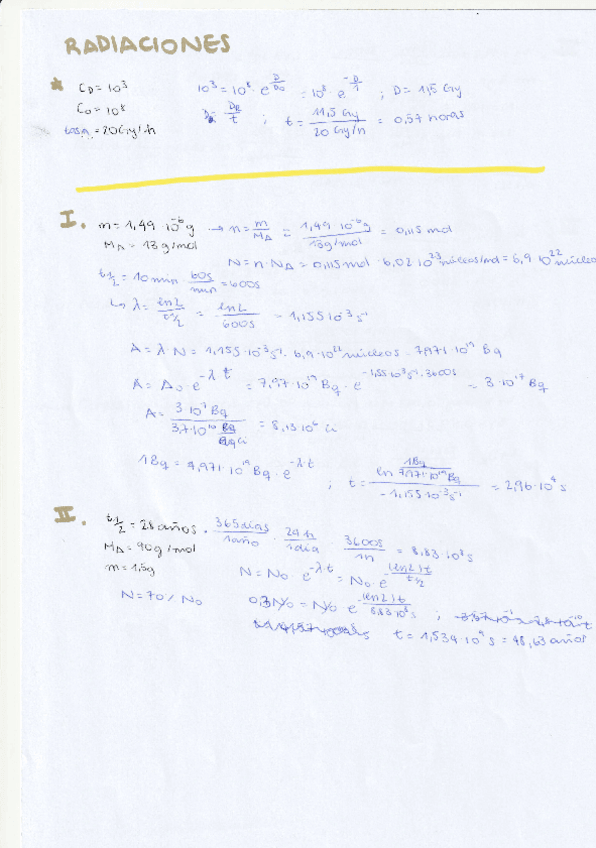 RADIACIONES
* C_D = 10³ 10³ = 10⁸ · e^(D/D₀) = 10⁸ · e^(-D/1) ; D = 11,5 Gy
C₀ = 10⁸ D_R/t ; t = 11,5 Gy / 20 Gy/h = 0,57 horas
tasa = 20 Gy/h
I. m = 1,49 · 10⁻⁶ g → n = m/M_A = 1,49 · 10⁻⁶ g / 13 g/mol = 0,115 mol
M_A = 13 g/mol
N = n · N_A = 0,115 mol · 6,02 · 10²³ núcleos/mol = 6,9 · 10²² núcleo
t½ = 10 min · 60s/min = 600s
↳ λ = ln2 / t½ = ln2 / 600s = 1,155 · 10⁻³ s⁻¹
A = λ · N = 1,155 · 10⁻³ s⁻¹ · 6,9 · 10²² núcleos = 7,971 · 10¹⁹ Bq
A = A₀ · e^(-λ · t) = 7,97 · 10¹⁹ Bq · e^(-1,155 · 10⁻³ s⁻¹ · 3600s) = 3 · 10¹⁷ Bq
A = 3 · 10¹⁷ Bq / 3,7 · 10¹⁰ Bq/Ci = 8,13 · 10⁶ Ci
1Bq = 7,971 · 10¹⁹ Bq · e^(-λ · t) ; t = ln (1Bq / 7,971 · 10¹⁹ Bq) / -1,155 · 10⁻³ s⁻¹ = 2,96 · 10⁴ s
II. t½ = 28 años · 365 días / 1 año · 24 h / 1 día · 3600s / 1h = 8,83 · 10⁸ s
M_A = 90 g/mol
m = 1,5g N = N₀ · e^(-λ · t) = N₀ · e^(-(ln2)t / t½)
N = 70% N₀ 0,3 N₀ = N₀ · e^(-(ln2)t / 8,83 · 10⁸ s) ;
t = 1,534 · 10⁹ s = 48,63 años